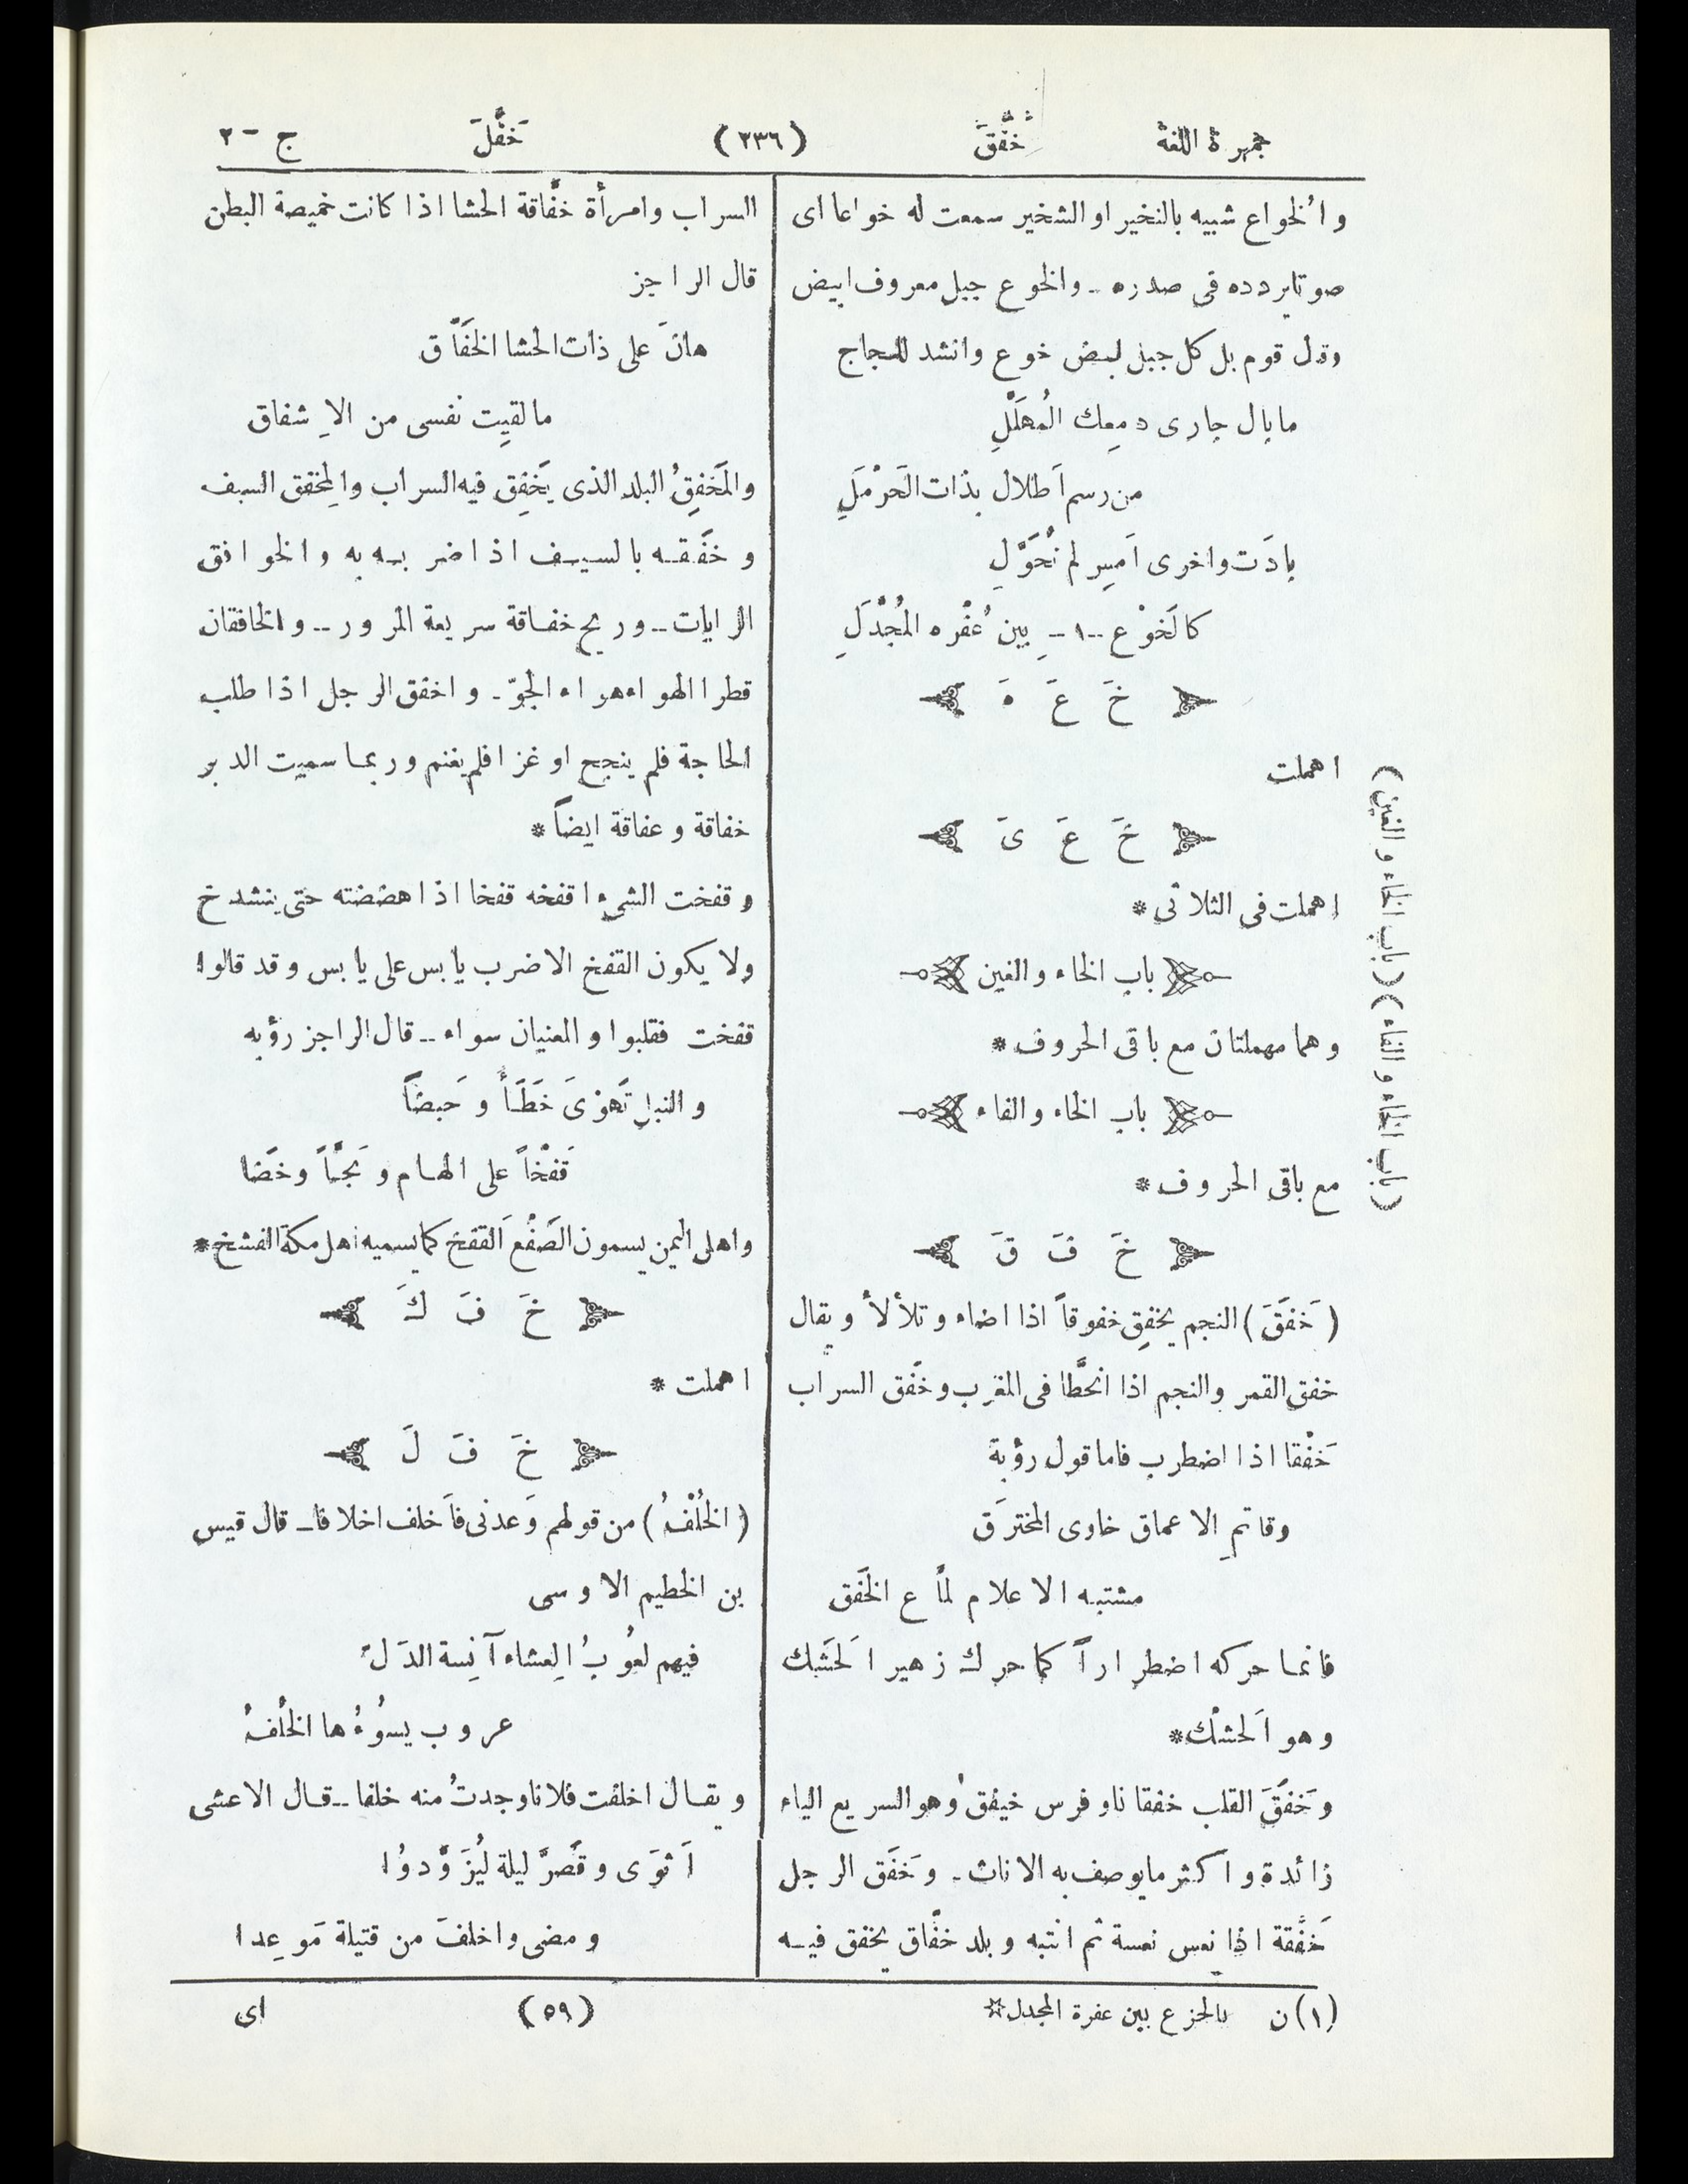 جمهرة اللغة خَفَقَ (٢٣٦) خَفَلَ ج - ٢
والخُواع شبيه بالنخير او الشخير سمعت له خواعا اى
صوتا يردده فى صدره - والخوع جبل معروف ابيض
وقال قوم بل كل جبل ابيض خوع وانشد للعجاج
ما بال جارى دمعِك المُهَلَّلِ
من رسم اَطلال بذات الَحَرْمَلِ
بادَت واخرى اَمسِ لم تُحَوَّلِ
كالَخَوْع -١- بين عُفْره المُجْدَلِ
خَ عَ هَ
اهملت
خَ عَ ىَ
اهملت فى الثلاثى *
باب الخاء والغين
وهما مهملتان مع باقى الحروف *
باب الخاء والفاء
مع باقى الحروف *
خَ فَ قَ
(خَفَقَ) النجم يخفِق خفوقاً اذا اضاء وتلألأ ويقال
خفق القمر والنجم اذا انحطَّا فى المغرب وخفَق السراب
خَفْقا اذا اضطرب فاما قول رؤبة
وقاتمِ الاعماق خاوى المخترَق
مشتبه الاعلام لمَّاع الخَفَق
فانما حركه اضطراراً كما حرك زهير الَحَشَك
وهو الَحَشْك *
وخَفَقَ القلب خفقانا وفرس خيفق وهو السريع الياء
زائدة واكثر ما يوصف به الاناث - وخَفَق الرجل
خَفْقة اذا نعس نعسة ثم انتبه وبلد خفَّاق يخفق فيه
السراب وامرأة خفَّاقة الحشا اذا كانت خميصة البطن
قال الراجز
هانَ على ذات الحشا الخَفَّاق
ما لقيِت نفسى من الاِشفاق
والمَخفِقُ البلد الذى يَخفِق فيه السراب والمِخفق السيف
وخَفَقه بالسيف اذا ضربه به والخوافق
الرايات - وريح خفاقة سريعة المرور - والخافقان
قطرا الهواء هواء الجوّ - واخفق الرجل اذا طلب
الحاجة فلم ينجح او غزا فلم يغنم وربما سميت الدبر
خفاقة وعفاقة ايضاً *
وقفخت الشىء اقفخه قفخا اذا هضضته حتى ينشدخ
ولا يكون القفخ الا ضرب يابس على يابس وقد قالوا
قفخت فقلبوا والمعنيان سواء - قال الراجز رؤبه
والنبل تَهوْىَ خَطَأً وحَبضاً
قَفْخاً على الهام وبَجّاً وخَضا
واهل اليمن يسمون الصَّفْع القَفخ كما يسميه اهل مكة الفشخ *
خَ فَ كَ
اهملت *
خَ فَ لَ
(الخُلْفُ) من قولهم وَعدنى فاَخلف اخلافا - قال قيس
بن الخطيم الاوسى
فيهم لعُوبُ العِشاء آنِسة الدَلّ
عروب يسوُءُها الخُلفُ
ويقال اخلفت فلانا وجدتُ منه خلفا - قال الاعشى
اَثوَى وقَصَّر ليلة ليُزَوَّدوُا
ومضى واخلفَ من قتيلة مَوعِدا
(١) ن بالجزع بين عفرة المجدل *
(٥٩)
اى
(باب الخاء والفاء) (باب الخاء والغين)